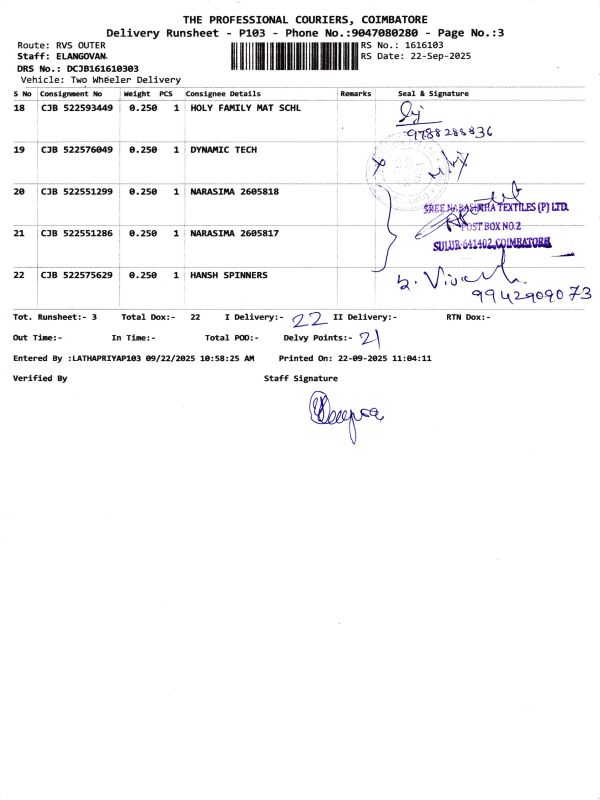 THE PROFESSIONAL COURIERS, COIMBATORE
Delivery Runsheet - P103 - Phone No.:9047080280 - Page No.:3
Route: RVS OUTER RS No.: 1616103
Staff: ELANGOVAN RS Date: 22-Sep-2025
DRS No.: DCJB161610303
Vehicle: Two Wheeler Delivery
S No Consignment No Weight PCS Consignee Details Remarks Seal & Signature
18 CJB 522593449 0.250 1 HOLY FAMILY MAT SCHL
9788288836
19 CJB 522576049 0.250 1 DYNAMIC TECH
20 CJB 522551299 0.250 1 NARASIMA 2605818
SREE NARASIMHA TEXTILES (P) LTD.
POST BOX NO.2
21 CJB 522551286 0.250 1 NARASIMA 2605817
SULUR-641402, COIMBATORE
22 CJB 522575629 0.250 1 HANSH SPINNERS
9942909073
Tot. Runsheet:- 3 Total Dox:- 22 I Delivery:- 22 II Delivery:- RTN Dox:-
Out Time:- In Time:- Total POD:- Delvy Points:- 21
Entered By :LATHAPRIYAP103 09/22/2025 10:58:25 AM Printed On: 22-09-2025 11:04:11
Verified By Staff Signature